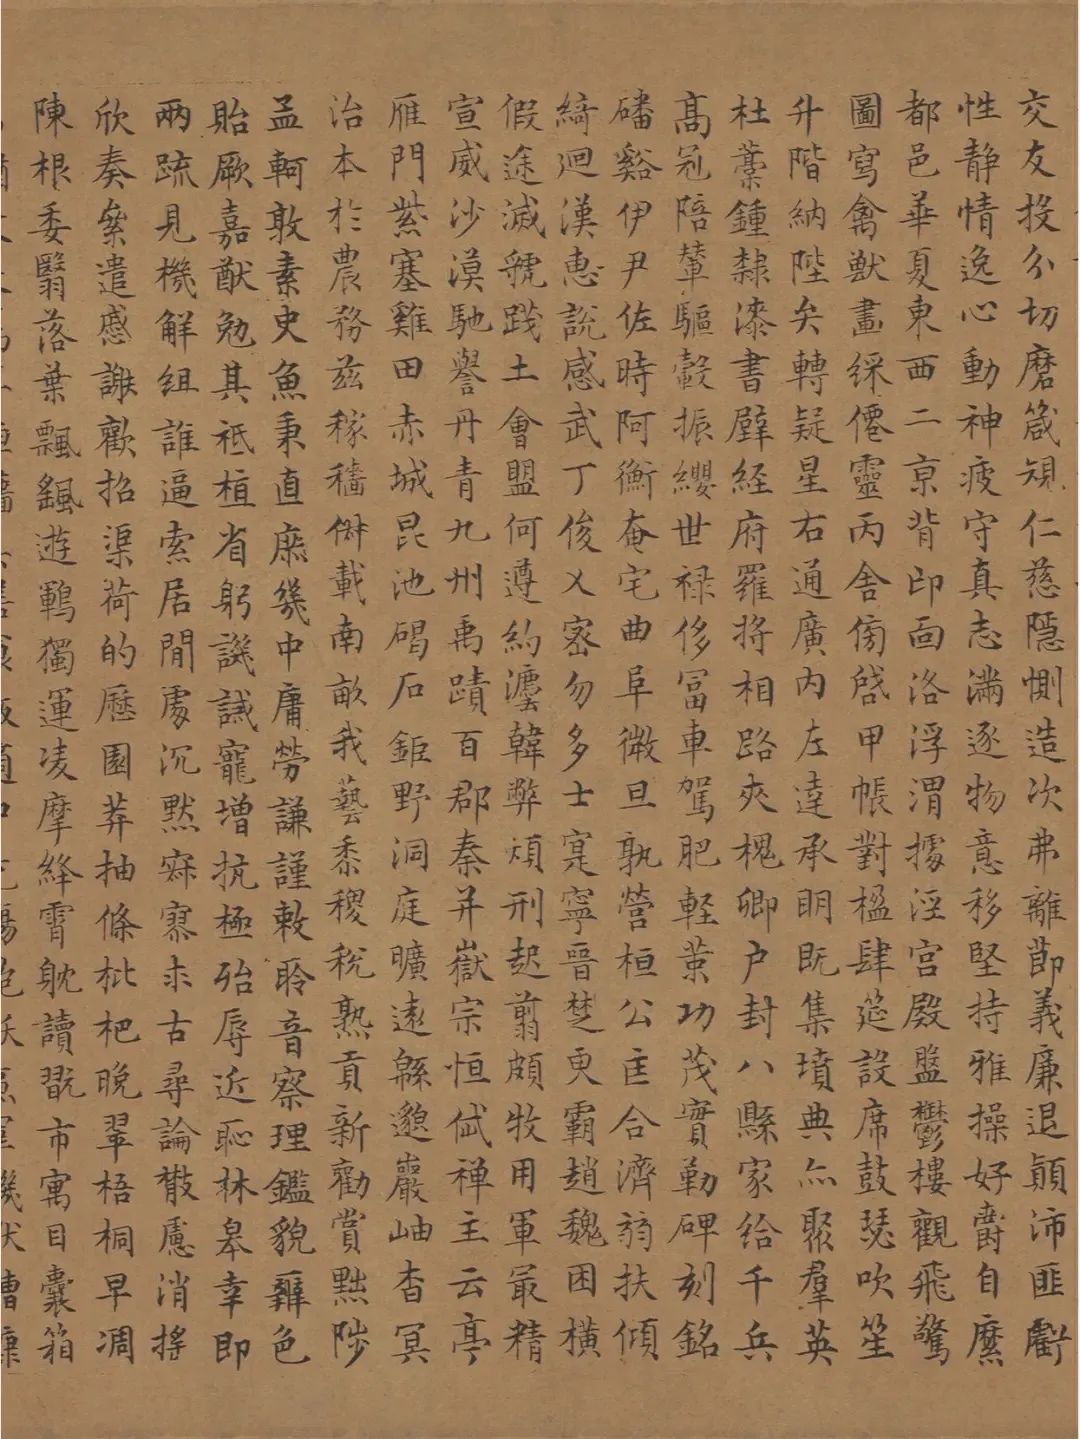 交友投分切磨箴規仁慈隱惻造次弗離節義廉退顛沛匪虧
性静情逸心動神疲守真志滿逐物意移堅持雅操好爵自縻
都邑華夏東西二京背邙面洛浮渭據涇宮殿盤鬱樓觀飛驚
圖寫禽獸畫綵僊靈丙舍傍啓甲帳對楹肆筵設席鼓瑟吹笙
升階納陛弁轉疑星右通廣內左達承明既集墳典亦聚羣英
杜藁鍾隸漆書壁經府羅將相路夾槐卿户封八縣家給千兵
高冠陪輦驅轂振纓世禄侈富車駕肥軽策功茂實勒碑刻銘
磻谿伊尹佐時阿衡奄宅曲阜微旦孰營桓公匡合濟弱扶傾
綺迴漢惠說感武丁俊乂密勿多士寔寧晉楚更霸趙魏困橫
假途滅虢踐土會盟何遵約灋韓弊煩刑起翦頗牧用軍最精
宣威沙漠馳譽丹青九州禹蹟百郡秦并嶽宗恒岱禅主云亭
雁門紫塞雞田赤城昆池碣石鉅野洞庭曠遠緜邈巖岫杳冥
治本於農務兹稼穡俶載南畝我藝黍稷稅熟貢新勸賞黜陟
孟軻敦素史魚秉直庶幾中庸勞謙謹敕聆音察理鑑貌辯色
貽厥嘉猷勉其祗植省躬譏誡寵增抗極殆辱近恥林皋幸即
兩疏見機解組誰逼索居閒處沉默寂寥求古尋論散慮消搖
欣奏累遣慼謝歡招渠荷的歷園莽抽條枇杷晚翠梧桐早凋
陳根委翳落葉飄颻遊鵾獨運凌摩絳霄耽讀翫市寓目囊箱